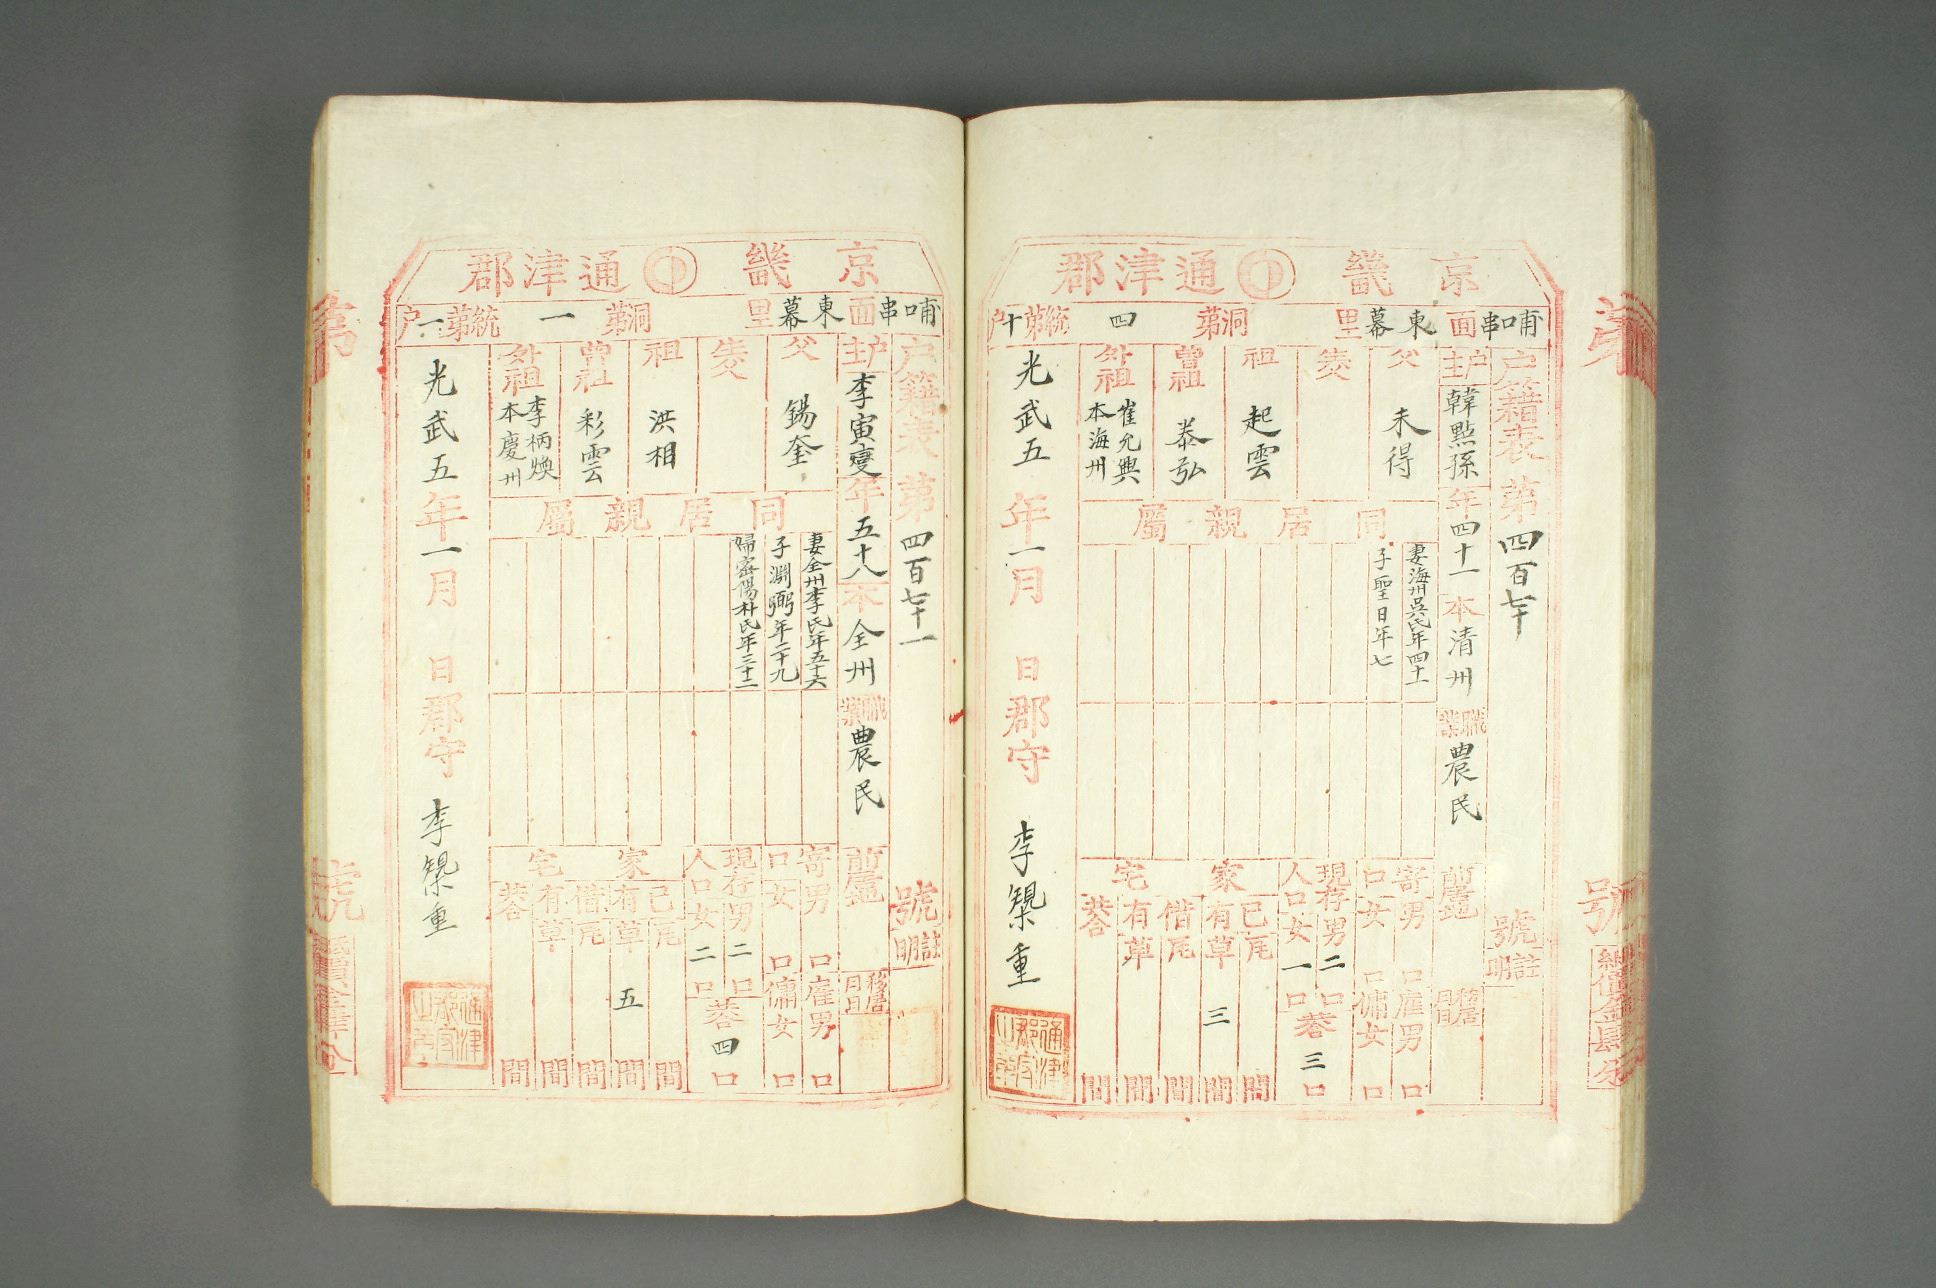 京畿 通津郡
哺口串面 東幕里 洞第四統第十户
户籍表 第四百七十 號 註明
户主 韓點孫 年四十一 本清州 職業 農民 前居地 移居月日
父 未得
生父
祖 起雲
曾祖 泰弘
外祖 崔允興 本海州
同居親屬
妻海州吳氏年四十一
子聖日年七
寄口 男 口 女 口
雇男 口 傭女 口
現存人口 男二口 女一口 共三口
家宅
己有 瓦 間 草 三間
借有 瓦 間 草 間
共 間
光武五年一月 日 郡守 李榘重
通津郡守之章
京畿 通津郡
哺口串面 東幕里 洞第一統第一户
户籍表 第四百七十一 號 註明
户主 李寅燮 年五十八 本全州 職業 農民 前居地 移居月日
父 錫奎
生父
祖 洪相
曾祖 彩雲
外祖 李柄煥 本慶州
同居親屬
妻全州李氏年五十六
子淵弼年二十九
婦密陽朴氏年三十二
寄口 男 口 女 口
雇男 口 傭女 口
現存人口 男二口 女二口 共四口
家宅
己有 瓦 間 草 五間
借有 瓦 間 草 間
共 間
光武五年一月 日 郡守 李榘重
通津郡守之章